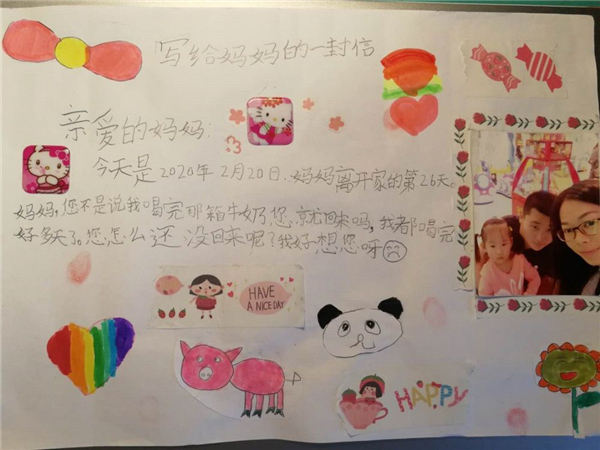 写给妈妈的一封信
亲爱的妈妈:
今天是2020年2月20日.妈妈离开家的第26天。
妈妈,您不是说我喝完那箱牛奶您就回来吗,我都喝完
好多天了。您怎么还没回来呢?我好想您呀
HAVE
A NICE DAY
HAPPY